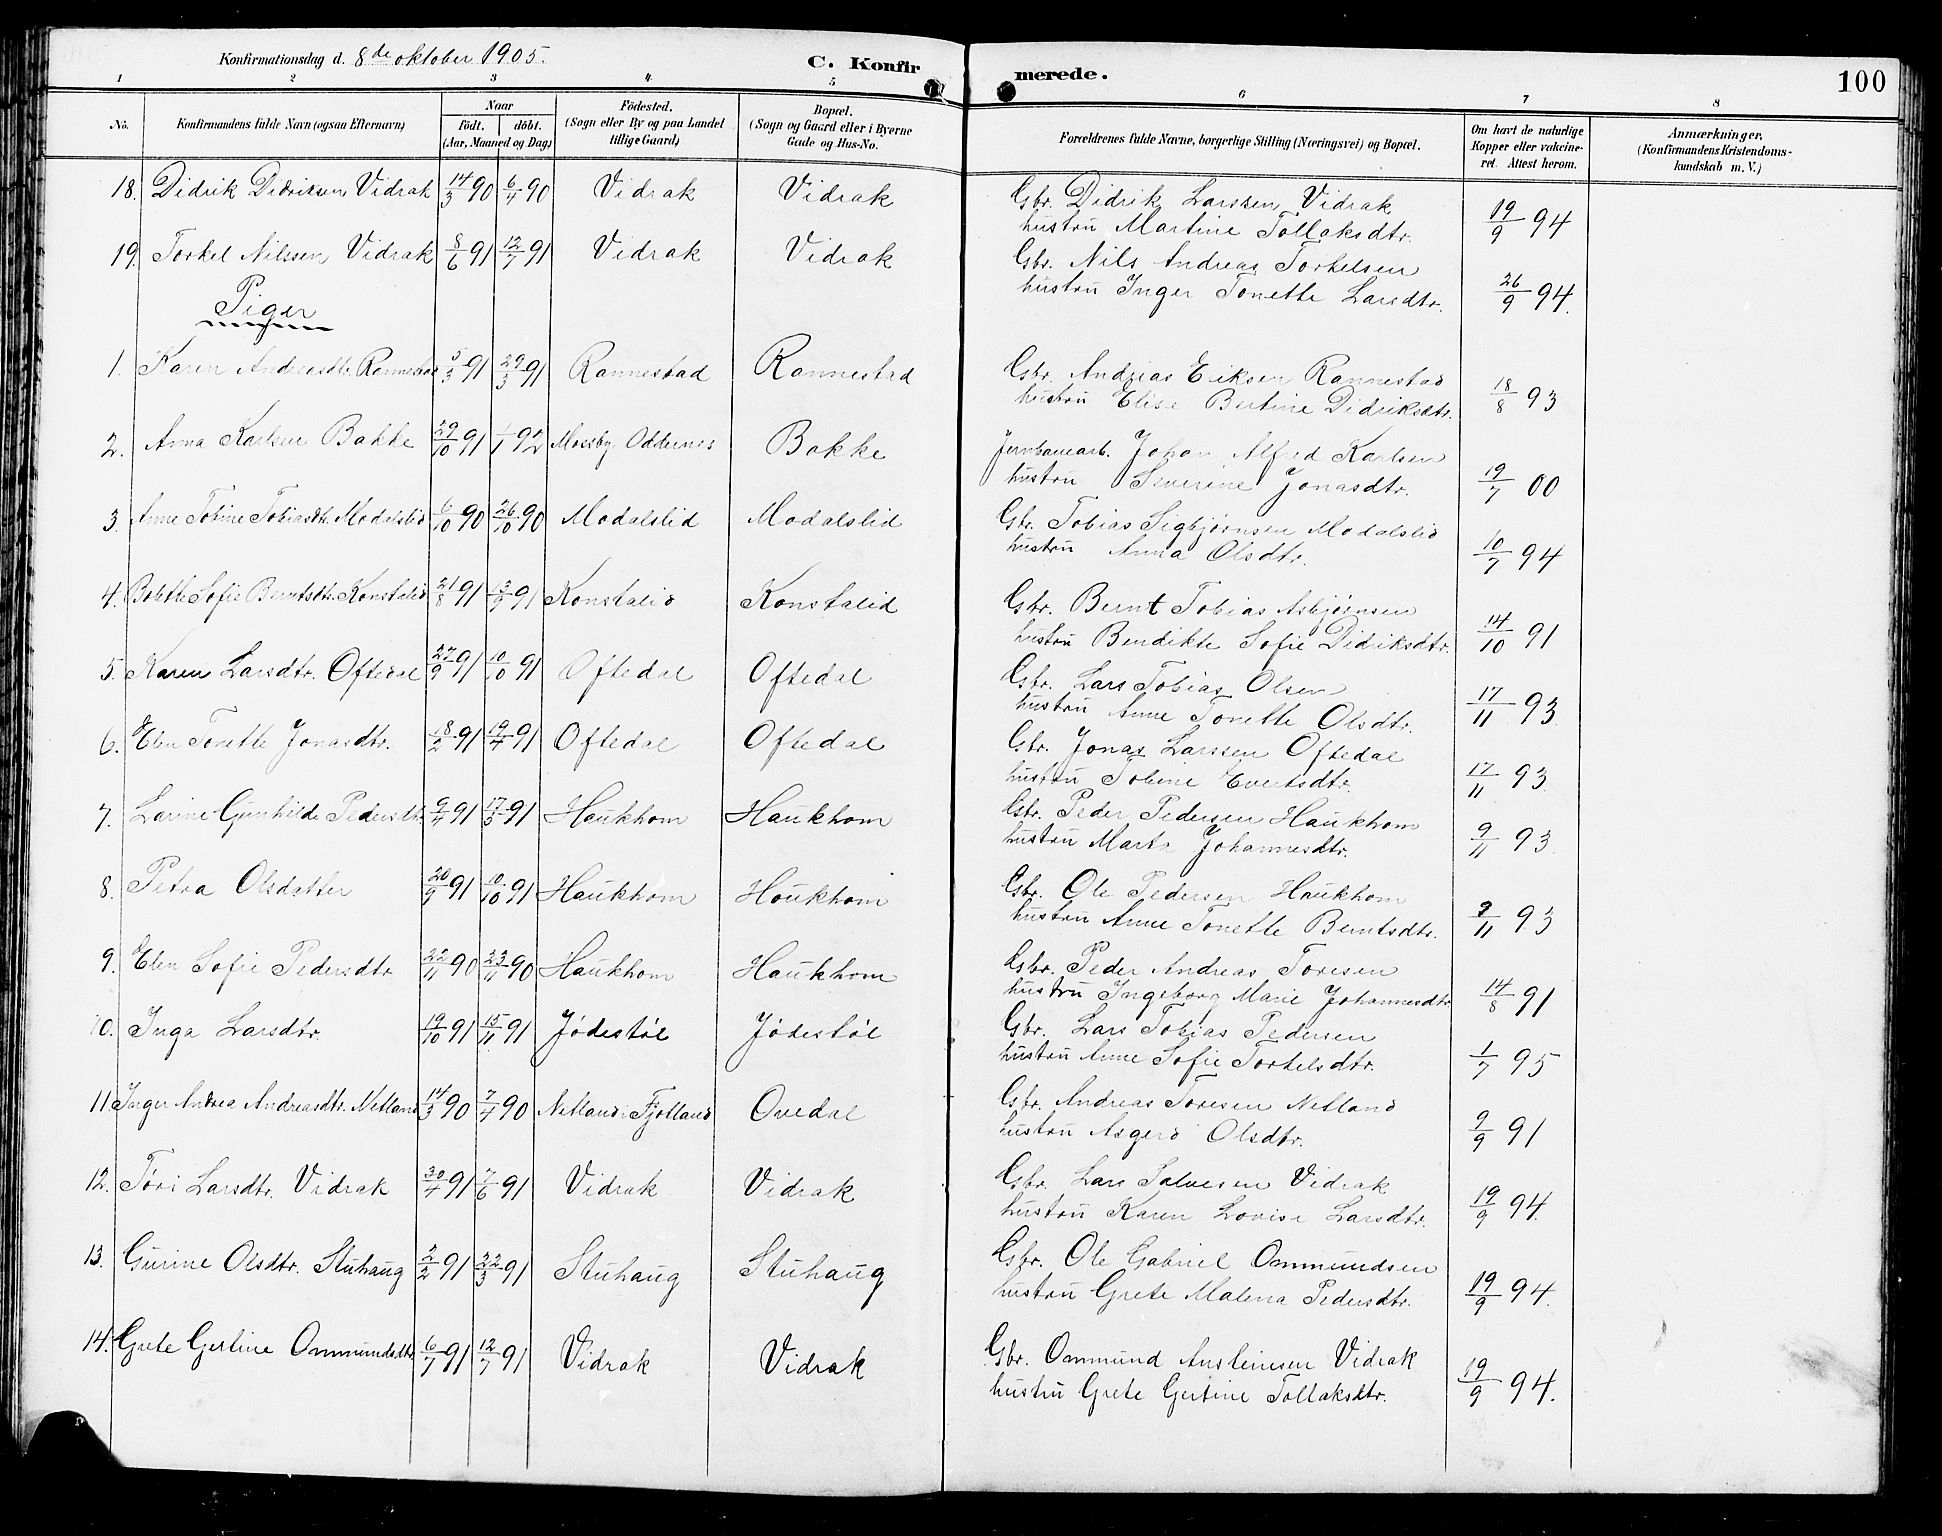 Konfirmationsdag d. 8de oktober 1905. C. Konfirmerede. 100
1 2 3 4 5 6 7 8
No. Konfirmandens fulde Navn (ogsaa Efternavn) Naar födt. döbt. (Aar, Maaned og Dag) Födested. (Sogn eller By og paa Landet tillige Gaard) Bopæl. (Sogn og Gaard eller i Byerne Gade og Hus-No. Forældrenes fulde Navne, borgerlige Stilling (Næringsvei) og Bopæl. Om havt de naturlige Kopper eller vakcineret. Attest herom. Anmærkninger, (Konfirmandens Kristendomskundskab m. V.)
18. Didrik Didriksen Vidrak 14/3 90 6/4 90 Vidrak Vidrak Gbr. Didrik Larssen Vidrak
hustru Martine Tollaksdtr. 19/9 94
19. Torkel Nilssen Vidrak 8/6 91 12/7 91 Vidrak Vidrak Gbr. Nils Andreas Torkelsen
hustru Inger Tonette Larsdtr. 26/9 94.
Piger
1. Karen Andreasdtr. Rannestad 5/3 91 29/3 91 Rannestad Rannestad Gbr. Andreas Eriksen Rannestad
hustru Elise Bertine Didriksdtr. 18/8 93
2. Anna Karlsen Bakke 29/10 91 1/1 92 Mosby Oddernes Bakke Jernbanearb. Johan Alfred Karlsen
hustru Severine Jonasdtr. 19/7 00
3. Anne Tobine Tobiasdtr. Modalslid 6/10 90 26/10 90 Modalslid Modalslid Gbr. Tobias Sigbjørnsen Modalslid
hustru Anna Olsdtr. 10/7 94
4. Bolette Sofie Berntsdtr. Konstalid 21/8 91 13/9 91 Konstalid Konstalid Gbr. Bernt Tobias Asbjørnsen
hustru Bendikte Sofie Didriksdtr. 14/10 91
5. Karen Larsdtr. Oftedal 27/9 91 10/10 91 Oftedal Oftedal Gbr. Lars Tobias Olsen
hustru Anne Tonette Olsdtr. 17/11 93
6. Elen Tonette Jonasdtr. 18/2 91 19/4 91 Oftedal Oftedal Gbr. Jonas Larssen Oftedal
hustru Tobine Evertsdtr. 17/11 93
7. Larine Gunhilde Pedersdtr. 9/4 91 17/5 91 Haukhom Haukhom Gbr. Peder Pedersen Haukhom
hustru Marta Johannesdtr. 9/11 93
8. Petra Olsdatter 20/9 91 10/10 91 Haukhom Haukhom Gbr. Ole Pedersen Haukhom
hustru Anne Tonette Berntsdtr. 9/11 93
9. Elen Sofie Pedersdtr 22/11 90 23/11 90 Haukhom Haukhom Gbr. Peder Andreas Toresen
hustru Ingeborg Marie Johannesdtr 14/8 91
10. Inga Larsdtr. 19/10 91 15/11 91 Jødestøl Jødestøl Gbr. Lars Tobias Pedersen
hustru Anne Sofie Torkelsdtr. 1/7 95
11. Inger Andrea Andreasdtr. Netland 14/3 90 7/4 90 Netland i Fjotland Ovedal Gbr. Andreas Toresen Netland
hustru Asgerd Olsdtr. 9/9 91
12. Tøri Larsdtr. Vidrak 30/4 91 7/6 91 Vidrak Vidrak Gbr. Lars Salvesen Vidrak
hustru Karen Lovise Larsdtr. 19/9 94.
13. Gurine Olsdtr. Stuhaug 2/2 91 22/3 91 Stuhaug Stuhaug Gbr. Ole Gabriel Ommundsen
hustru Grete Malena Pedersdtr. 19/9 94.
14. Grete Gertine Ommundsdtr. 6/7 91 12/7 91 Vidrak Vidrak Gbr. Ommund Ansteinsen Vidrak
hustru Grete Gertine Tollaksdtr. 19/9 94.